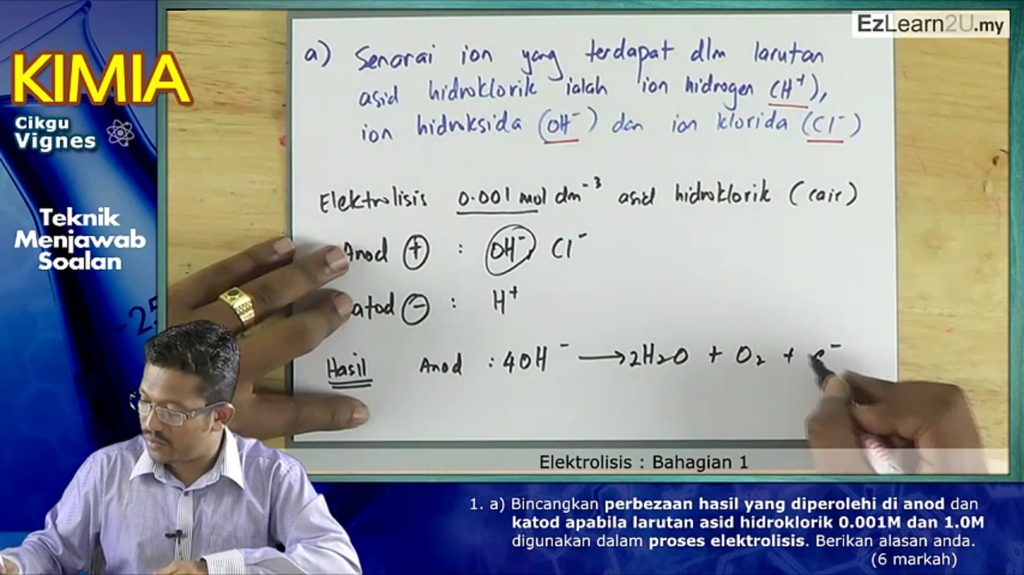 EzLearn2U.my
KIMIA
Cikgu
Vignes
Teknik
Menjawab
Soalan
a) Senarai ion yang terdapat dlm larutan
asid hidroklorik ialah ion hidrogen (H⁺),
ion hidroksida (OH⁻) dan ion klorida (Cl⁻)
Elektrolisis 0.001 mol dm⁻³ asid hidroklorik (cair)
Anod + : OH⁻, Cl⁻
atod - : H⁺
Hasil Anod : 4OH⁻ → 2H₂O + O₂ + e⁻
-25
Elektrolisis : Bahagian 1
1. a) Bincangkan perbezaan hasil yang diperolehi di anod dan
katod apabila larutan asid hidroklorik 0.001M dan 1.0M
digunakan dalam proses elektrolisis. Berikan alasan anda.
(6 markah)